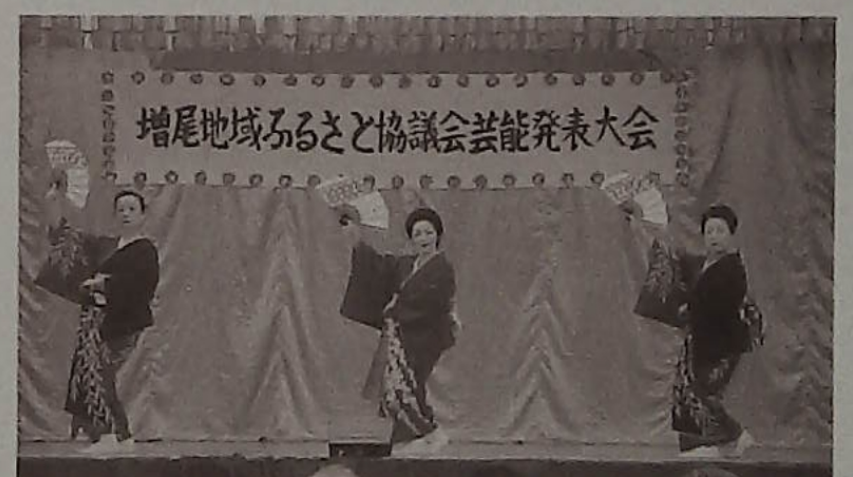 増尾地域ふるさと協議会芸能発表大会